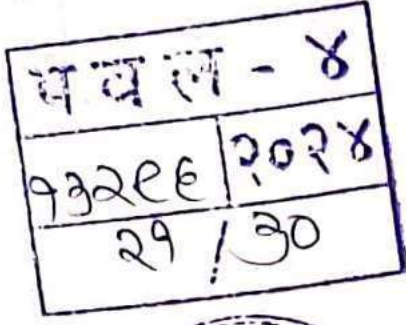 प व ल - ४
१३२९६ २०२४
२१ / ३०